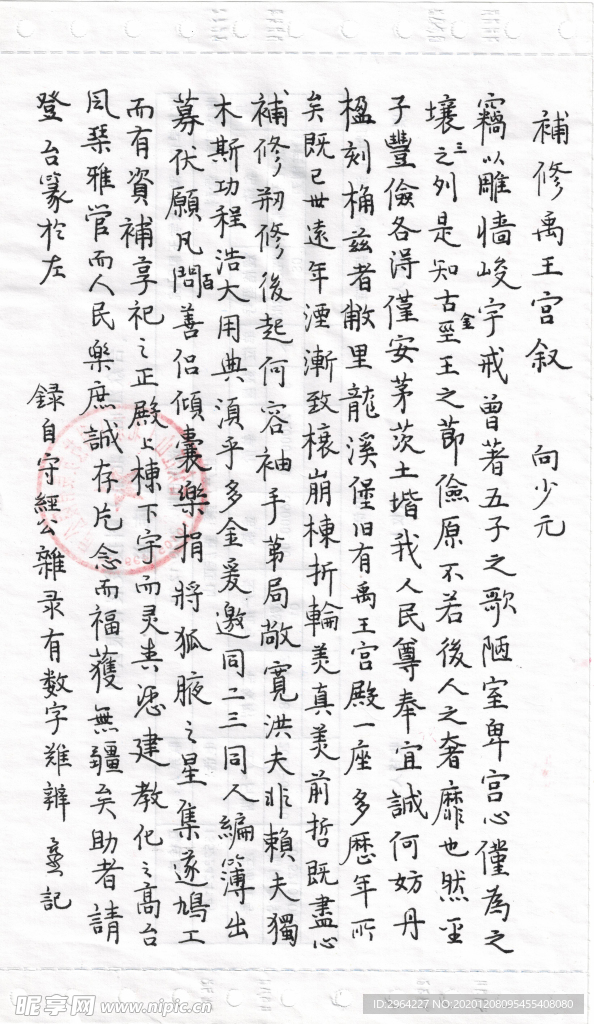 補修禹王宫叙 向少元
竊以雕墙峻宇戒曾著五子之歌陋室卑宫心僅為之
壤三之列是知古圣金王之節儉原不若後人之奢靡也然圣
子豐儉各得僅安茅茨土堦我人民尊奉宜誠何妨丹
楹刻桷兹者敝里龍溪堡旧有禹王宫殿一座多歷年所
矣既已世遠年湮漸致榱崩棟折輪美真美前哲既盡心
補修剏修後起何容袖手苐局敞寛洪夫非賴夫獨
木斯功程浩大用典湏乎多金爰邀同二三同人編簿出
募伏願凡問百善侣傾囊樂捐將狐腋之星集遂鳩工
而有資補享祀之正殿上棟下宇而灵其憑建教化之高台
風琴雅管而人民樂庶誠存片念而福獲無疆矣助者請
登台篆於左
録自守經公雜录有数字难辨 彝記
昵享网 www.nipic.cn
ID:2964227 NO:20201208095455408080